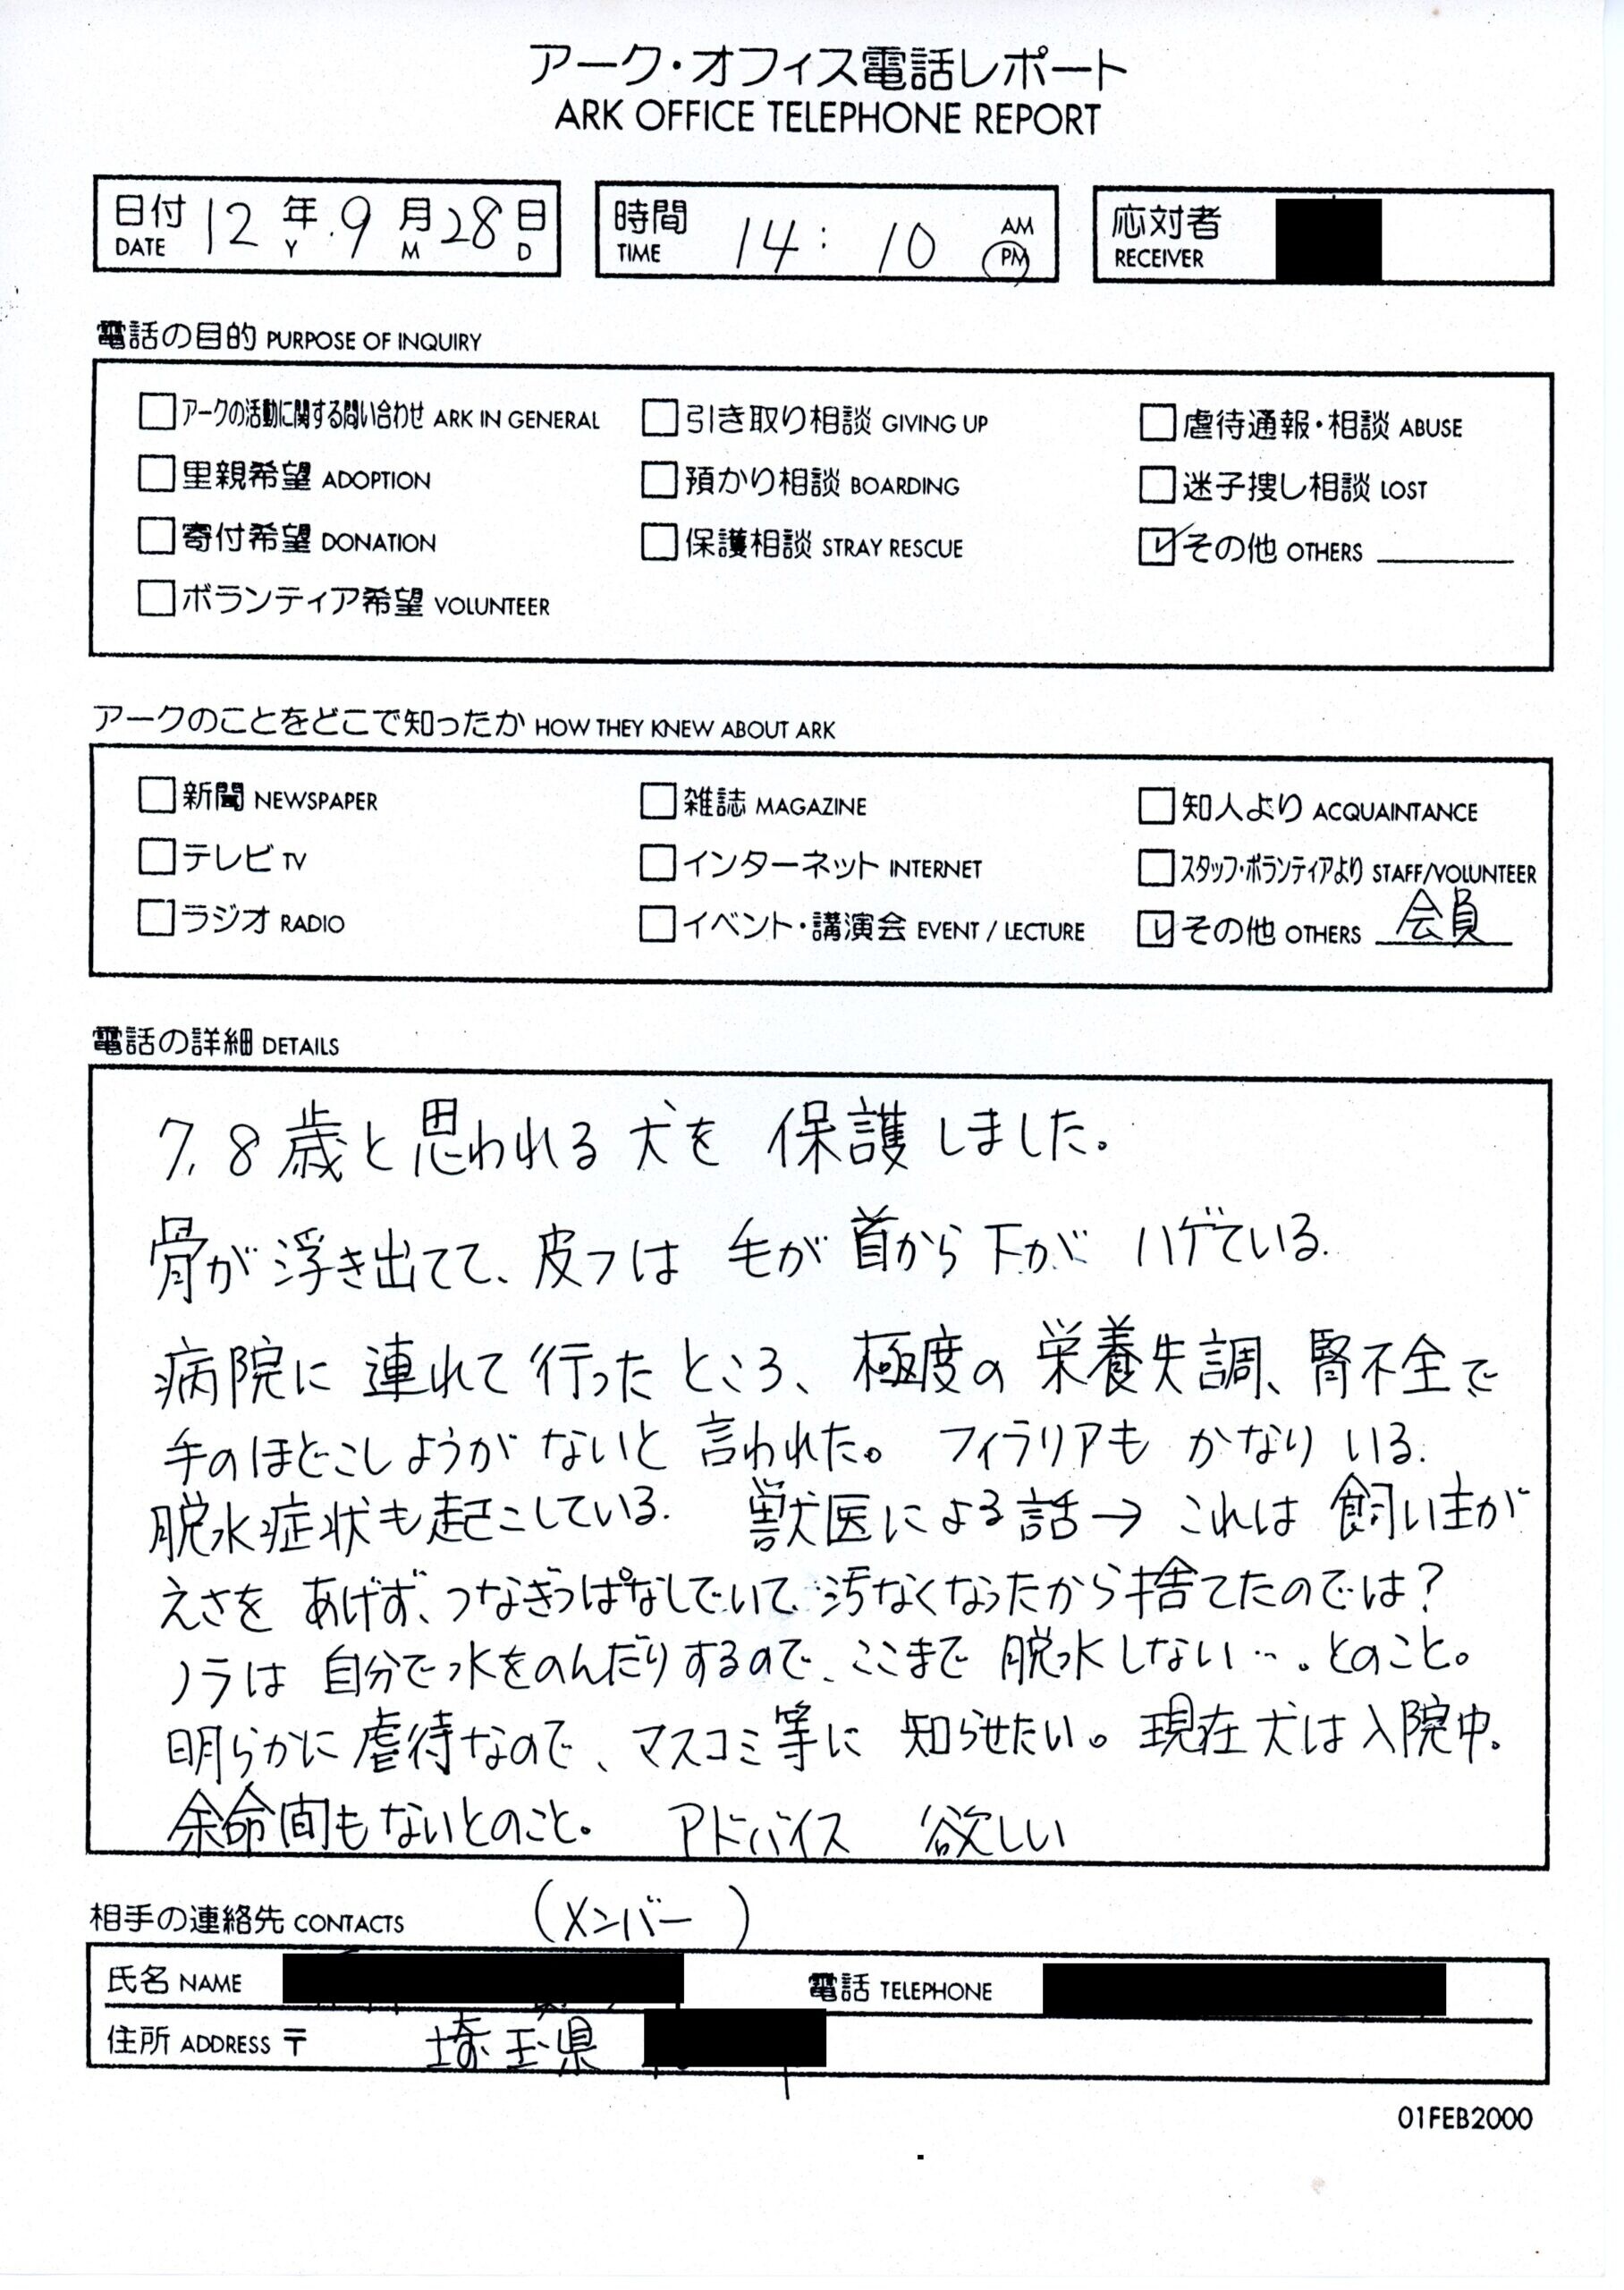 アーク・オフィス電話レポート
ARK OFFICE TELEPHONE REPORT
日付 DATE 12 年 Y .9 月 M 28 日 D
時間 TIME 14 : 10 AM PM
応対者 RECEIVER
電話の目的 PURPOSE OF INQUIRY
アークの活動に関する問い合わせ ARK IN GENERAL
引き取り相談 GIVING UP
虐待通報・相談 ABUSE
里親希望 ADOPTION
預かり相談 BOARDING
迷子捜し相談 LOST
寄付希望 DONATION
保護相談 STRAY RESCUE
その他 OTHERS
ボランティア希望 VOLUNTEER
アークのことをどこで知ったか HOW THEY KNEW ABOUT ARK
新聞 NEWSPAPER
雑誌 MAGAZINE
知人より ACQUAINTANCE
テレビ TV
インターネット INTERNET
スタッフ・ボランティアより STAFF/VOLUNTEER
ラジオ RADIO
イベント・講演会 EVENT / LECTURE
その他 OTHERS 会員
電話の詳細 DETAILS
7、8歳と思われる犬を 保護しました。
骨が浮き出てて、皮フは 毛が首から下が ハゲている.
病院に連れて行ったところ、極度の栄養失調、腎不全で
手のほどこしようがないと言われた。 フィラリアも かなりいる.
脱水症状も起こしている. 獣医による話→これは飼い主が
えさを あげず、つなぎっぱなしでいて、汚なくなったから捨てたのでは?
ノラは 自分で水をのんだりするので、ここまで 脱水しない…。とのこと。
明らかに虐待なので、マスコミ等に 知らせたい。現在犬は入院中。
余命間もないとのこと。 アドバイス 欲しい
相手の連絡先 CONTACTS (メンバー )
氏名 NAME
電話 TELEPHONE
住所 ADDRESS 〒 埼玉県
01FEB2000